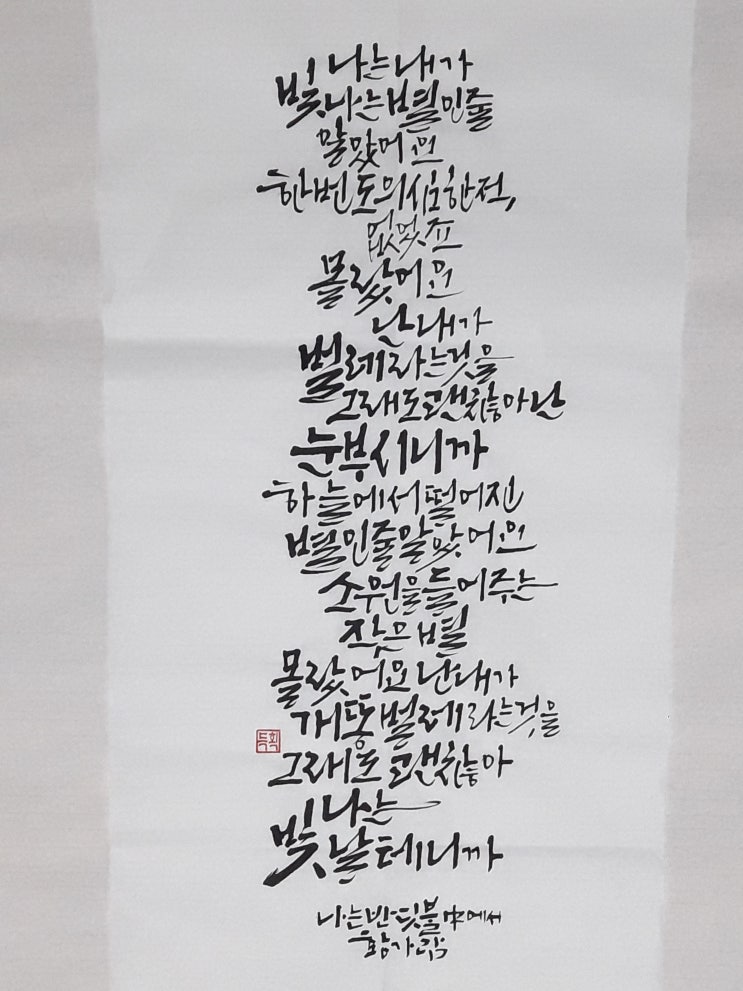 나는 내가
빛나는 별인줄
알았어요
한번도 의심한적,
없었죠
몰랐어요
난 내가
벌레라는것을
그래도 괜찮아 난
눈부시니까
하늘에서 떨어진
별인줄 알았어요
소원을 들어주는
작은 별
몰랐어요 난 내가
개똥벌레라는것을
그래도 괜찮아
나는
빛날테니까
나는반딧불中에서
황가람